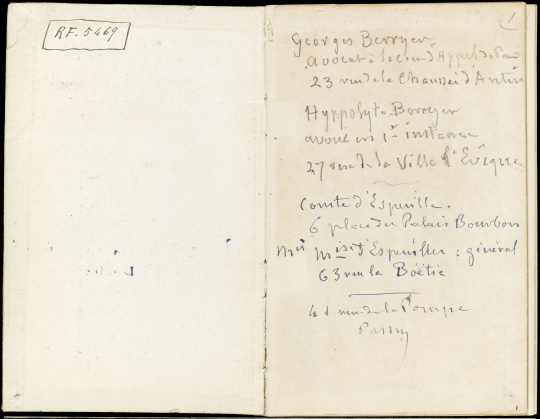 RF. 5469
1
Georges Berryer
avocat à la cour d'Appel de Paris
23 rue de la Chaussée d'Antin
Hyppolyte Berryer
avoué en 1re instance
27 rue de la Ville l'Evêque
Comte d'Espeuille.
6 place du Palais Bourbon
Mis d'Espeuilles : général
63 rue la Boëtie
41 rue de la Pompe
Passy